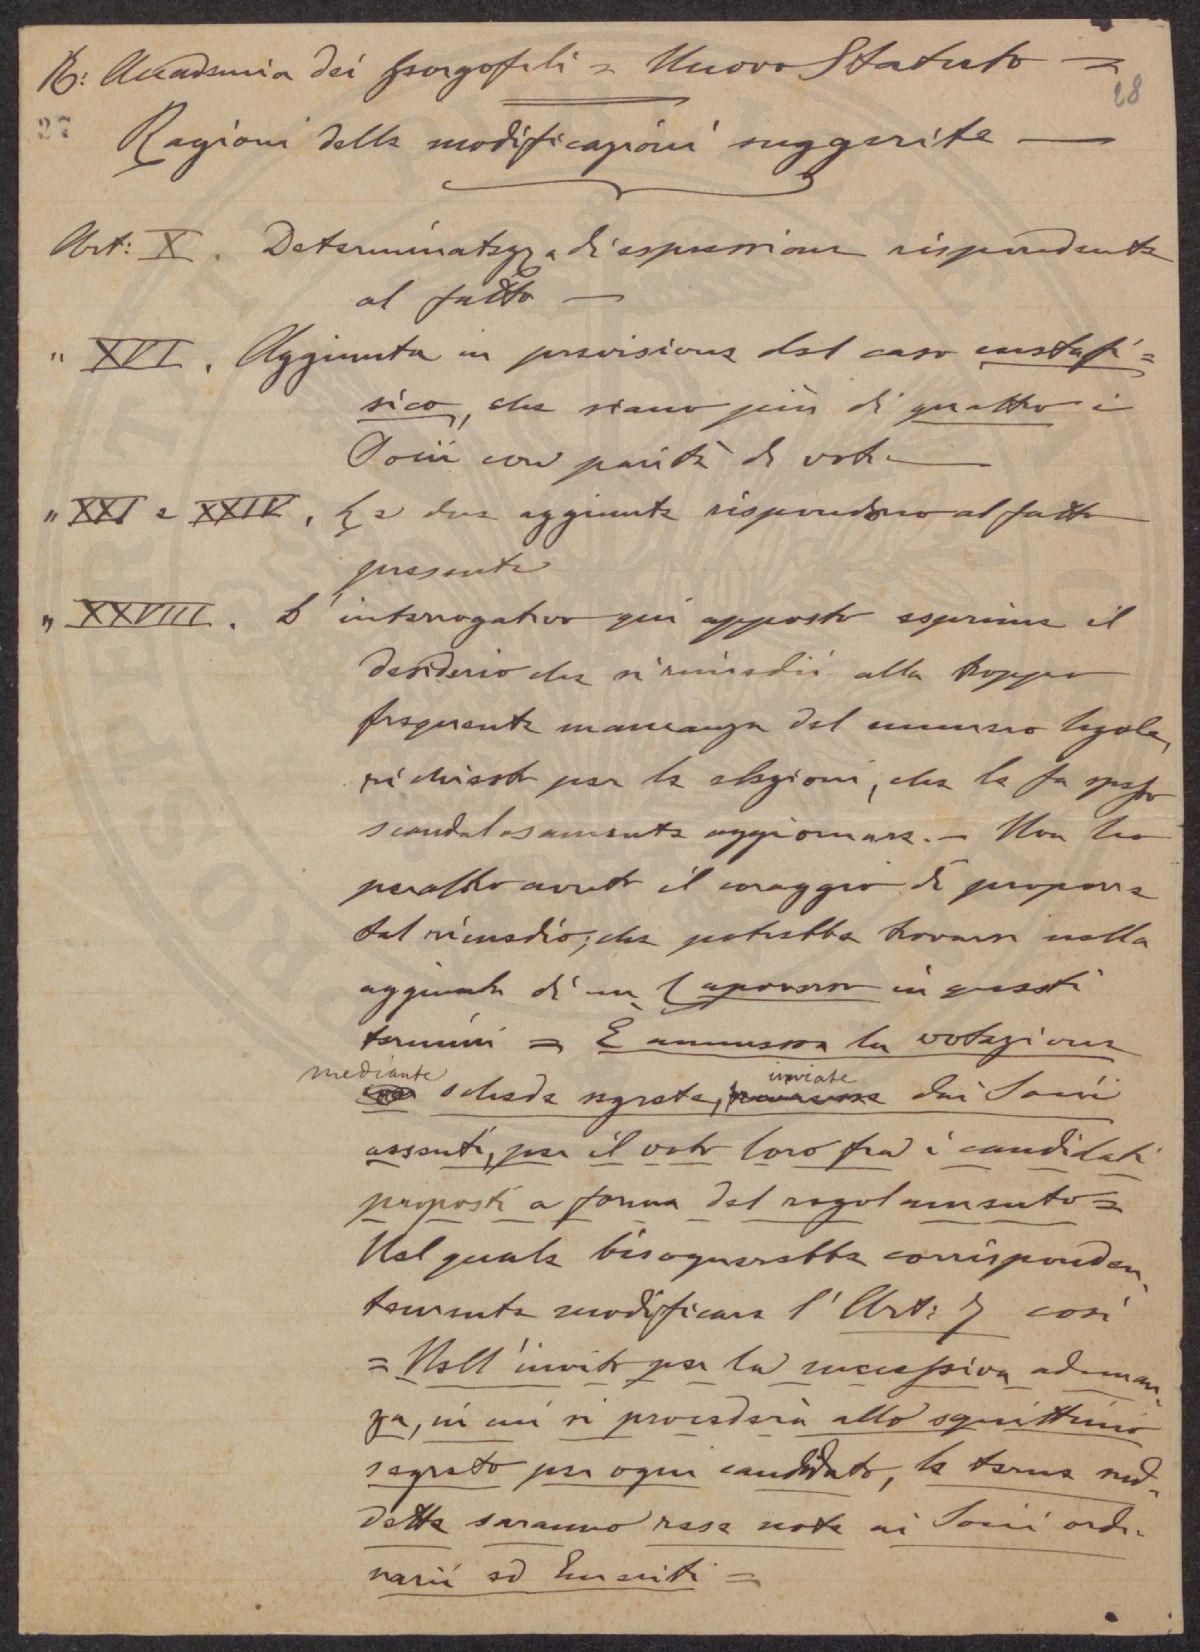 R: Accademia dei Georgofili = Nuovo Statuto =
28
27
Ragioni delle modificazioni suggerite —
Art: X. Determinatezza di espressione rispondente
al fatto —
" XVI. Aggiunta in previsione del caso metafi=
sico, che siano più di quattro i
Socii con parità di voti —
" XXI e XXIV. Le due aggiunte rispondono al fatto
presente
" XXVIII. L'interrogativo qui apposto esprime il
desiderio che si rimedii alla troppo
frequente mancanza del numero legale,
richiesto per le elezioni, che le fa spesso
scandalosamente aggiornare. — Non ho
peraltro avuto il coraggio di proporre
tal rimedio; che potrebbe trovarsi nella
aggiunta di un capoverso in questi
termini = È ammessa la votazione
mediante schede segrete, inviate dai Socii
assenti, per il voto loro fra i candidati
proposti a forma del regolamento =
Nel quale bisognerebbe corrisponden-
temente modificare l'Art: 7 così
= Nell'invito per la successiva adunan-
za, in cui si procederà allo squittinio
segreto per ogni candidato, le terne sud-
dette saranno rese note ai Socii ordi-
narii ed Emeriti =